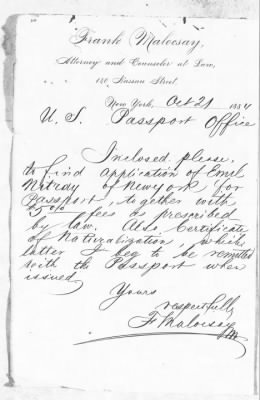 Frank Malocsay,
Attorney and Counselor at Law,
120 Nassau Street.
New York, Oct 21 1884
U. S. Passport Office
Inclosed please
to find application of Emil
of New York for
Passport, together with
$5 00 fees as prescribed
by law. Also Certificate
of Naturalization, which
latter I beg to be remitted
with the Passport when
issued
Yours
respectfully
F Malocsay